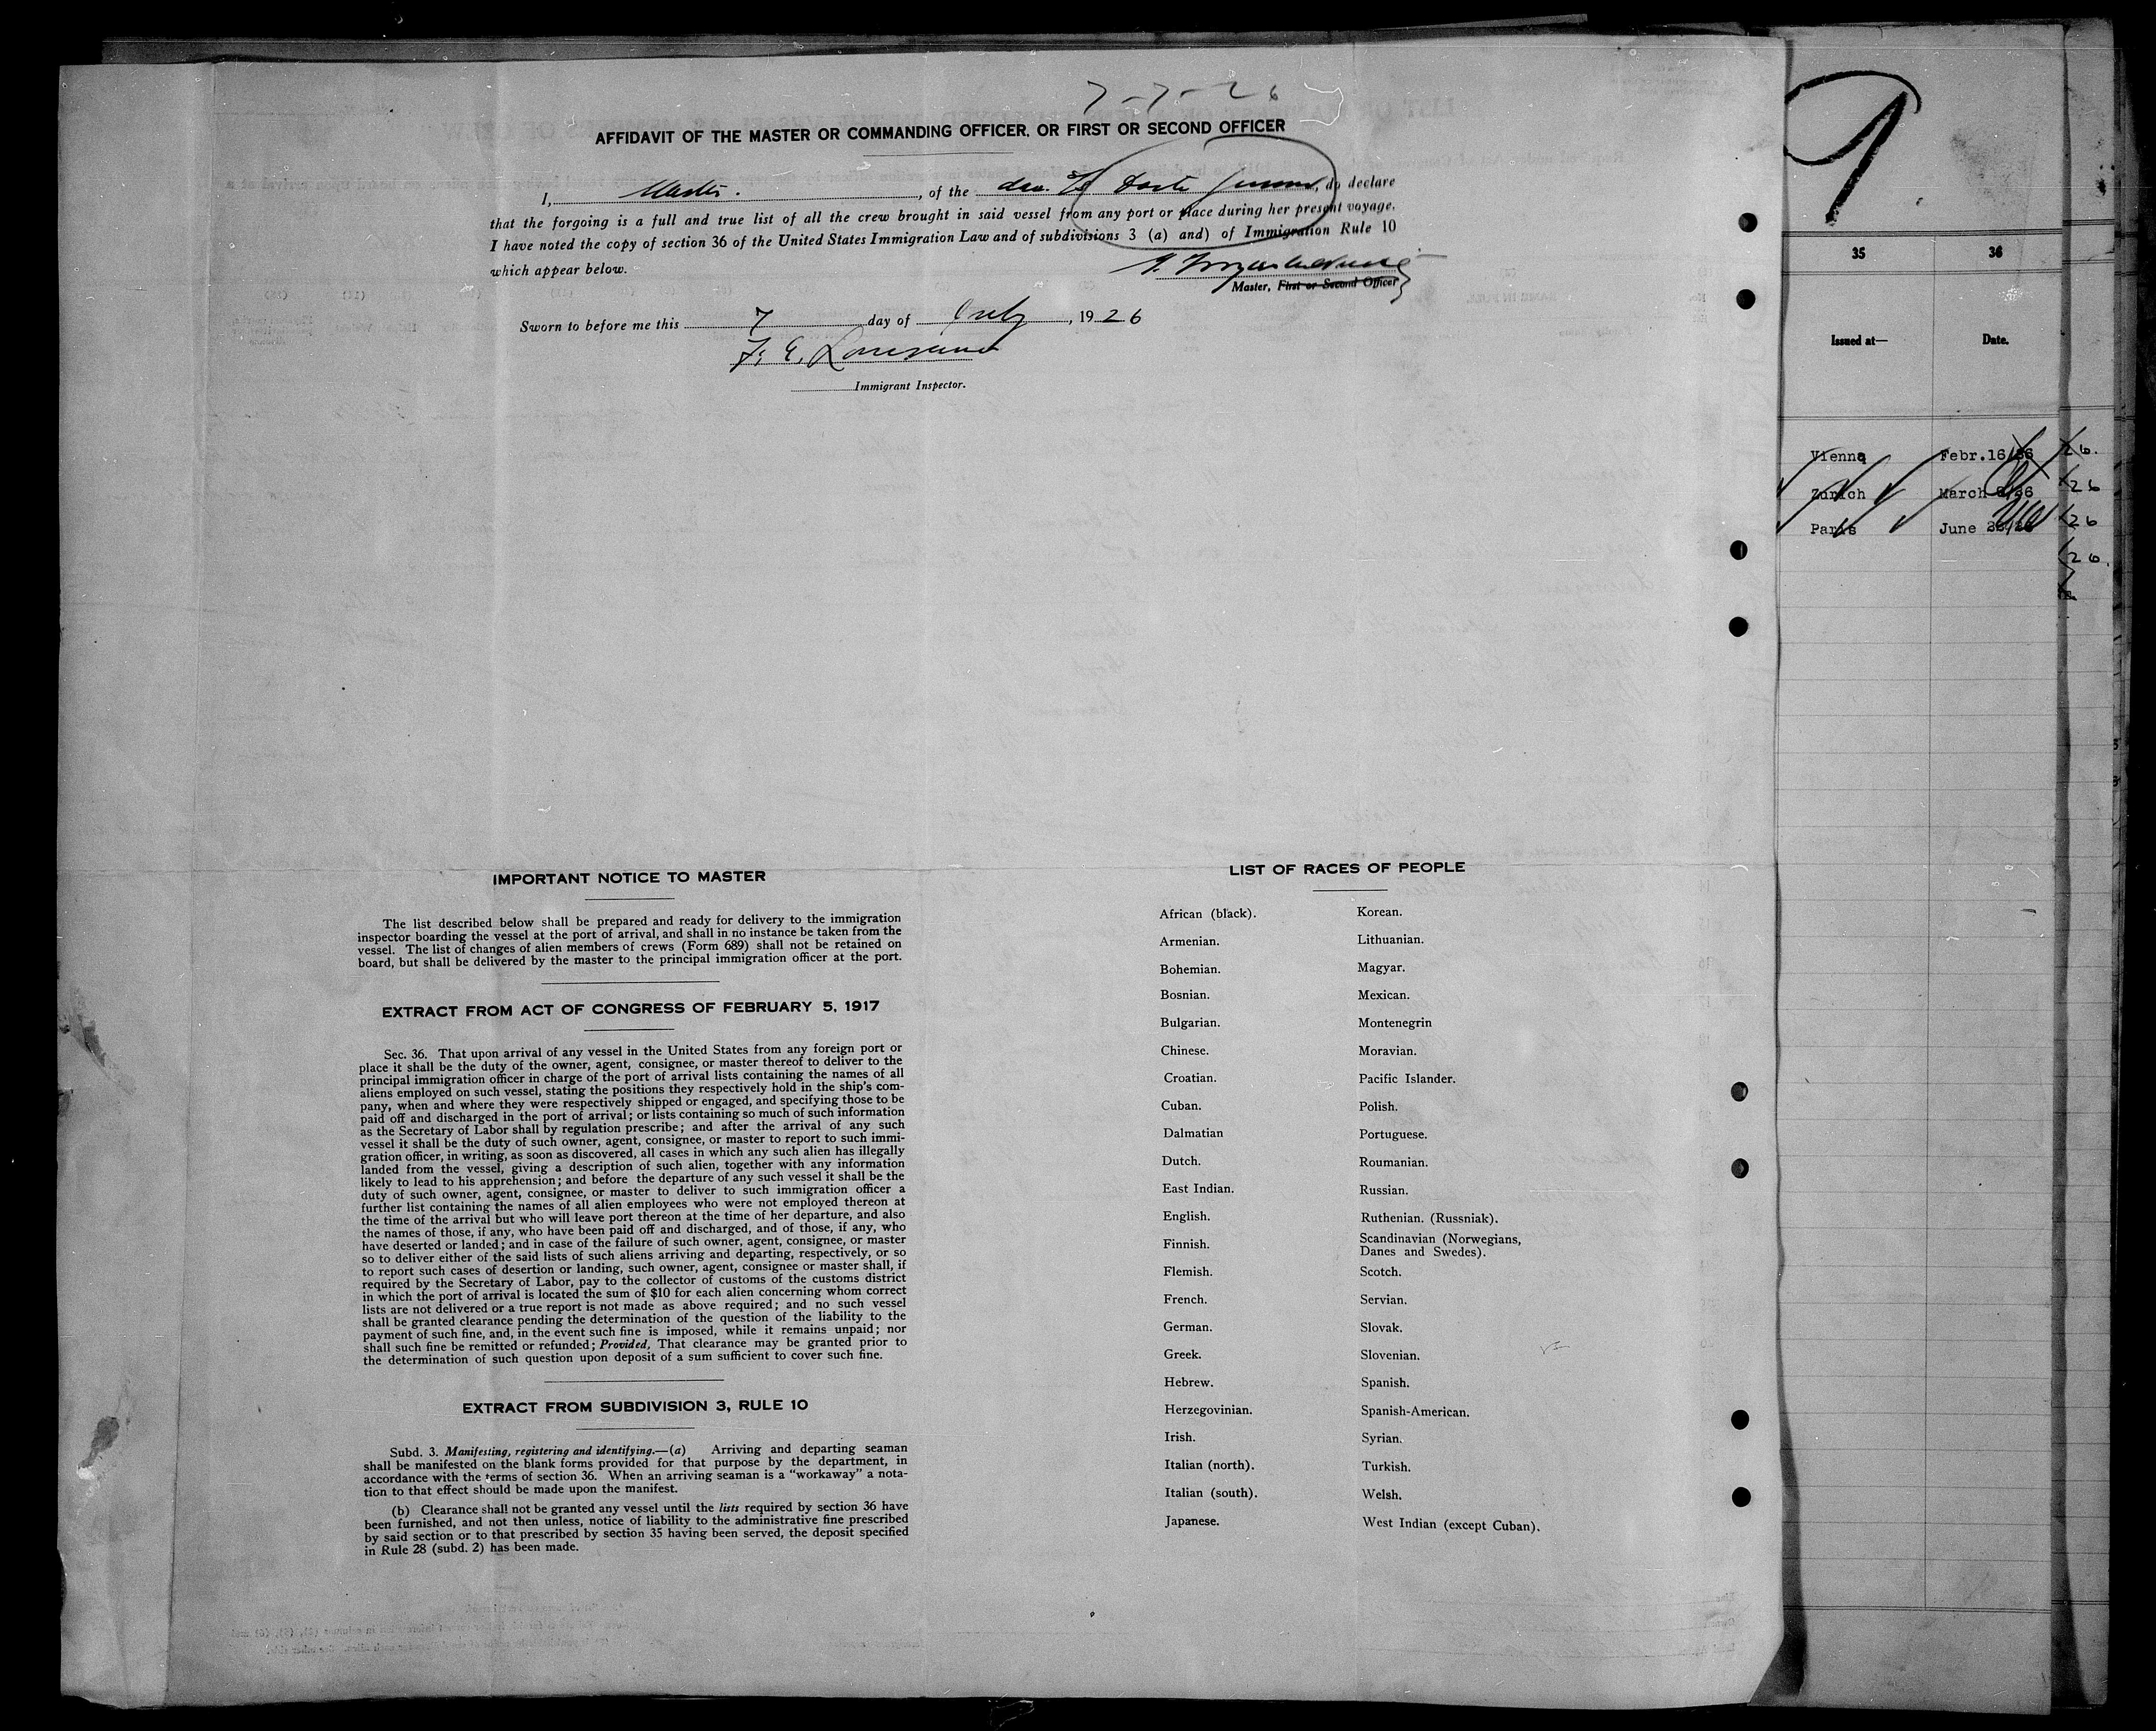 7-7-26
AFFIDAVIT OF THE MASTER OR COMMANDING OFFICER, OR FIRST OR SECOND OFFICER
I, Master. , of the , do declare
that the forgoing is a full and true list of all the crew brought in said vessel from any port or place during her present voyage.
I have noted the copy of section 36 of the United States Immigration Law and of subdivisions 3 (a) and) of Immigration Rule 10
which appear below.
Master, First or Second Officer
Sworn to before me this 7 day of July, 1926
F. E.
Immigrant Inspector.
IMPORTANT NOTICE TO MASTER
The list described below shall be prepared and ready for delivery to the immigration
inspector boarding the vessel at the port of arrival, and shall in no instance be taken from the
vessel. The list of changes of alien members of crews (Form 689) shall not be retained on
board, but shall be delivered by the master to the principal immigration officer at the port.
EXTRACT FROM ACT OF CONGRESS OF FEBRUARY 5, 1917
Sec. 36. That upon arrival of any vessel in the United States from any foreign port or
place it shall be the duty of the owner, agent, consignee, or master thereof to deliver to the
principal immigration officer in charge of the port of arrival lists containing the names of all
aliens employed on such vessel, stating the positions they respectively hold in the ship's com-
pany, when and where they were respectively shipped or engaged, and specifying those to be
paid off and discharged in the port of arrival; or lists containing so much of such information
as the Secretary of Labor shall by regulation prescribe; and after the arrival of any such
vessel it shall be the duty of such owner, agent, consignee, or master to report to such immi-
gration officer, in writing, as soon as discovered, all cases in which any such alien has illegally
landed from the vessel, giving a description of such alien, together with any information
likely to lead to his apprehension; and before the departure of any such vessel it shall be the
duty of such owner, agent, consignee, or master to deliver to such immigration officer a
further list containing the names of all alien employees who were not employed thereon at
the time of the arrival but who will leave port thereon at the time of her departure, and also
the names of those, if any, who have been paid off and discharged, and of those, if any, who
have deserted or landed; and in case of the failure of such owner, agent, consignee, or master
so to deliver either of the said lists of such aliens arriving and departing, respectively, or so
to report such cases of desertion or landing, such owner, agent, consignee or master shall, if
required by the Secretary of Labor, pay to the collector of customs of the customs district
in which the port of arrival is located the sum of $10 for each alien concerning whom correct
lists are not delivered or a true report is not made as above required; and no such vessel
shall be granted clearance pending the determination of the question of the liability to the
payment of such fine, and, in the event such fine is imposed, while it remains unpaid; nor
shall such fine be remitted or refunded; Provided, That clearance may be granted prior to
the determination of such question upon deposit of a sum sufficient to cover such fine.
EXTRACT FROM SUBDIVISION 3, RULE 10
Subd. 3. Manifesting, registering and identifying.—(a) Arriving and departing seaman
shall be manifested on the blank forms provided for that purpose by the department, in
accordance with the terms of section 36. When an arriving seaman is a "workaway" a nota-
tion to that effect should be made upon the manifest.
(b) Clearance shall not be granted any vessel until the lists required by section 36 have
been furnished, and not then unless, notice of liability to the administrative fine prescribed
by said section or to that prescribed by section 35 having been served, the deposit specified
in Rule 28 (subd. 2) has been made.
LIST OF RACES OF PEOPLE
African (black).
Armenian.
Bohemian.
Bosnian.
Bulgarian.
Chinese.
Croatian.
Cuban.
Dalmatian
Dutch.
East Indian.
English.
Finnish.
Flemish.
French.
German.
Greek.
Hebrew.
Herzegovinian.
Irish.
Italian (north).
Italian (south).
Japanese.
Korean.
Lithuanian.
Magyar.
Mexican.
Montenegrin
Moravian.
Pacific Islander.
Polish.
Portuguese.
Roumanian.
Russian.
Ruthenian. (Russniak).
Scandinavian (Norwegians,
Danes and Swedes).
Scotch.
Servian.
Slovak.
Slovenian.
Spanish.
Spanish-American.
Syrian.
Turkish.
Welsh.
West Indian (except Cuban).
35 36
Issued at— Date.
Vienna Febr.16/26 26.
Zurich March /26 26
Paris June 26
26.